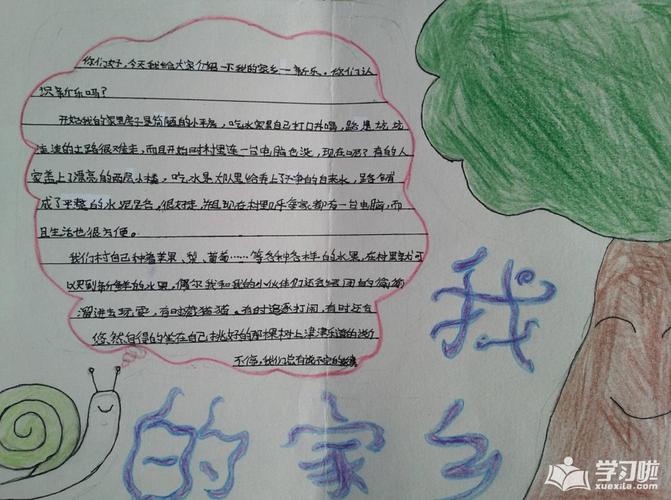 你们好，今天我给大家介绍一下我的家乡—新乐。你们认
识新乐吗？
开始我的家里房子是简陋的小平房，吃水家里自己打口井喝，路是坑坑
洼洼的土路很难走，而且开始时村里连一台电脑也没，现在呢？有的人
家盖上了漂亮的两层小楼，吃水是大队里给弄上了干净的自来水，路铺
成了平整的水泥路，很好走，并且现在村里几乎每家都有一台电脑，而
且生活也很方便。
我们村自己种着苹果、梨、葡萄……等各种各样的水果，在村里就可
以买到新鲜的水果，偶尔我和我的小伙伴们还会
溜进去玩耍，有时捉猫猫。有时追逐打闹，有时还在
悠然自得的坐在自己挑好的那棵树上津津乐道的
不停，我们总有说不完的
我
的家乡
学习啦
xuexila.com